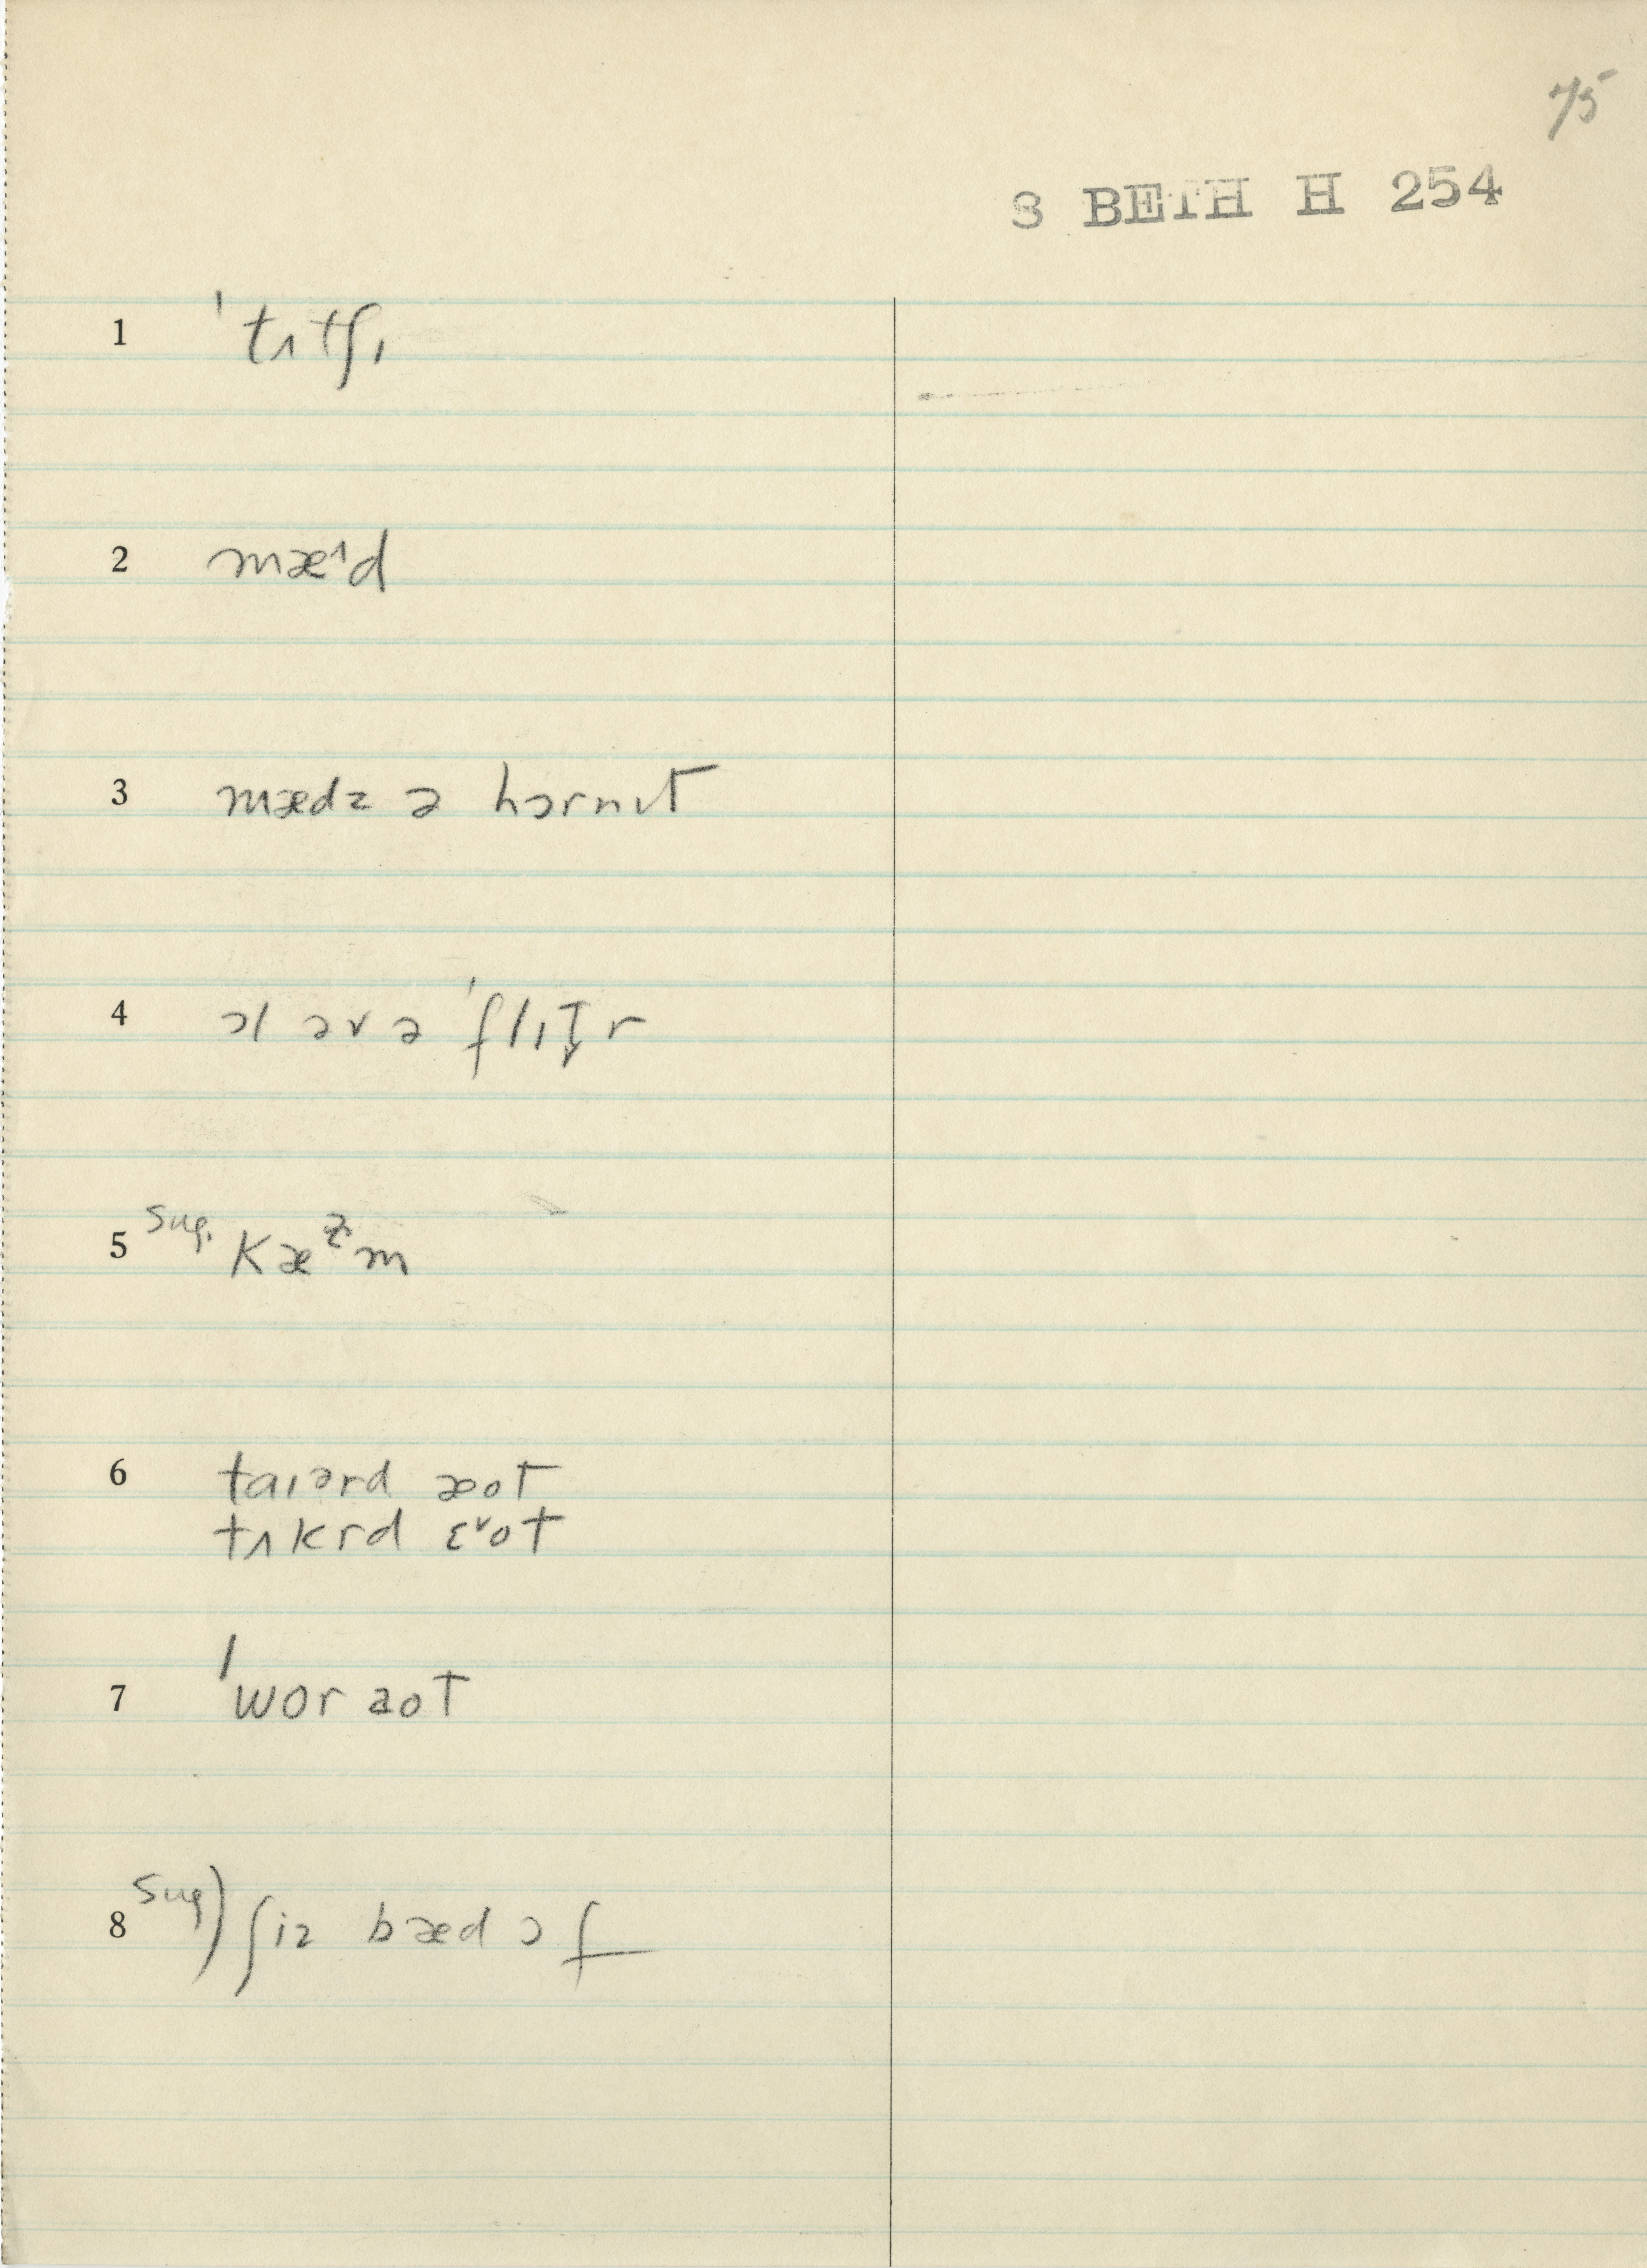 75
S BETH H 254
1 ˈtʌtʃɪ
2 mæᶦd
3 mædz ə hɔrnɪt
4 ɔl əv ə ˈflɪt̬r
5 sug. kæᶻm
6 taɪərd æot
tʌkrd ɛᵛot
7 ˈwor aot
8 sug) ʃiz bæd ɔf